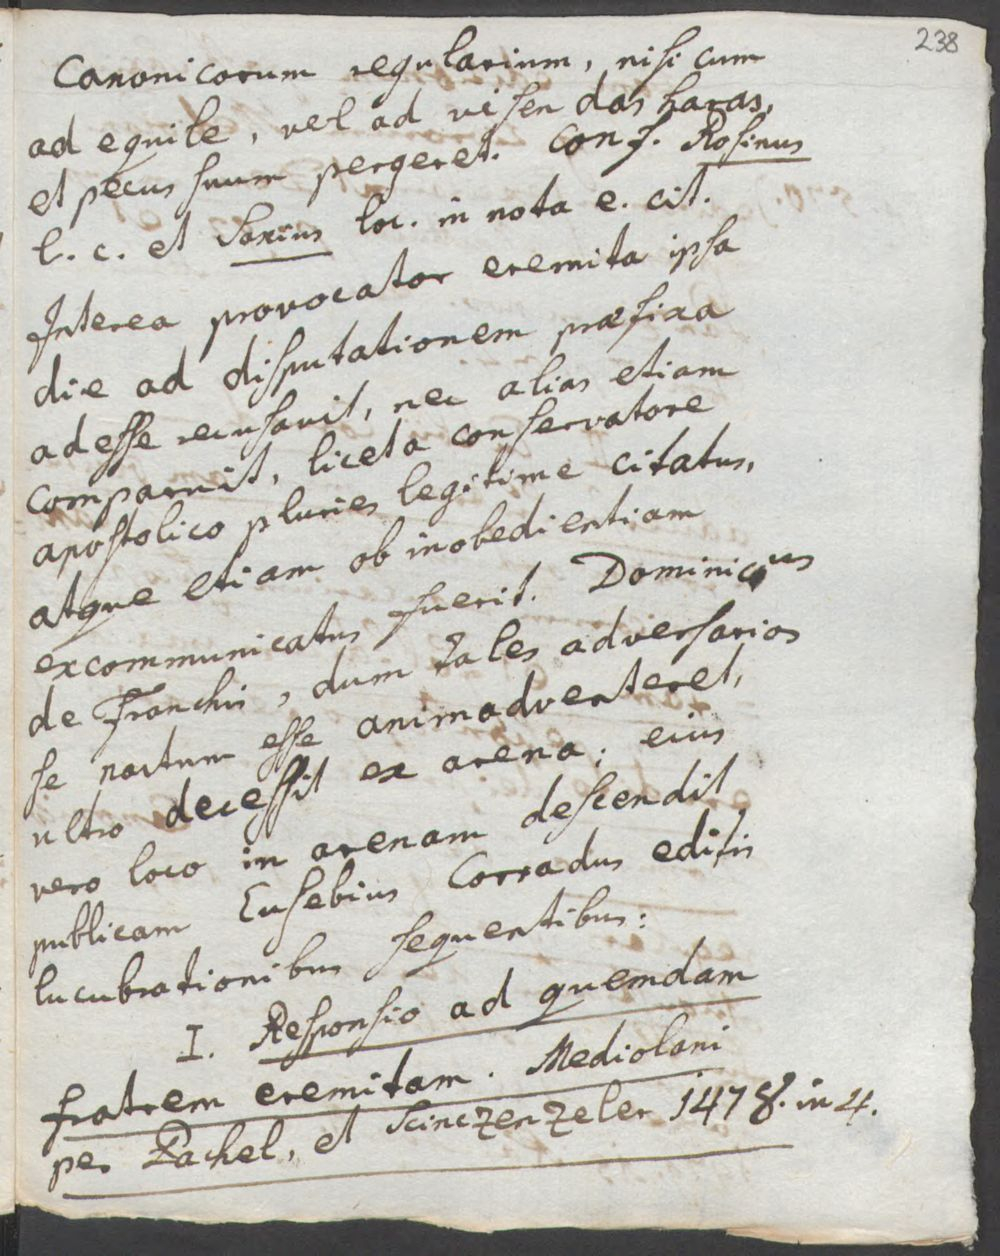 238
Canonicorum regularium, nisi cum
ad equile, vel ad visendas haras,
et pecus suum pergeret. Conf. Rosinus
l. c. et Saxius loc. in nota e. cit.
Interea provocator eremita ipsa
die ad disputationem præfixa
adesse recusavit, nec alias etiam
comparuit, liceta conservatore
apostolico pluries legitime citatus,
atque etiam ob inobedientiam
excommunicatus fuerit. Dominicus
de Franchis, dum tales adversarios
se nactum esse animadverteret,
ultro decessit ex arena; eius
vero loco in arenam descendit
publicam Eusebius Corradus editis
lucubrationibus sequentibus:
I. Responsio ad quemdam
fratrem eremitam. Mediolani
per Pachel, et Scinczenzeler 1478. in 4.